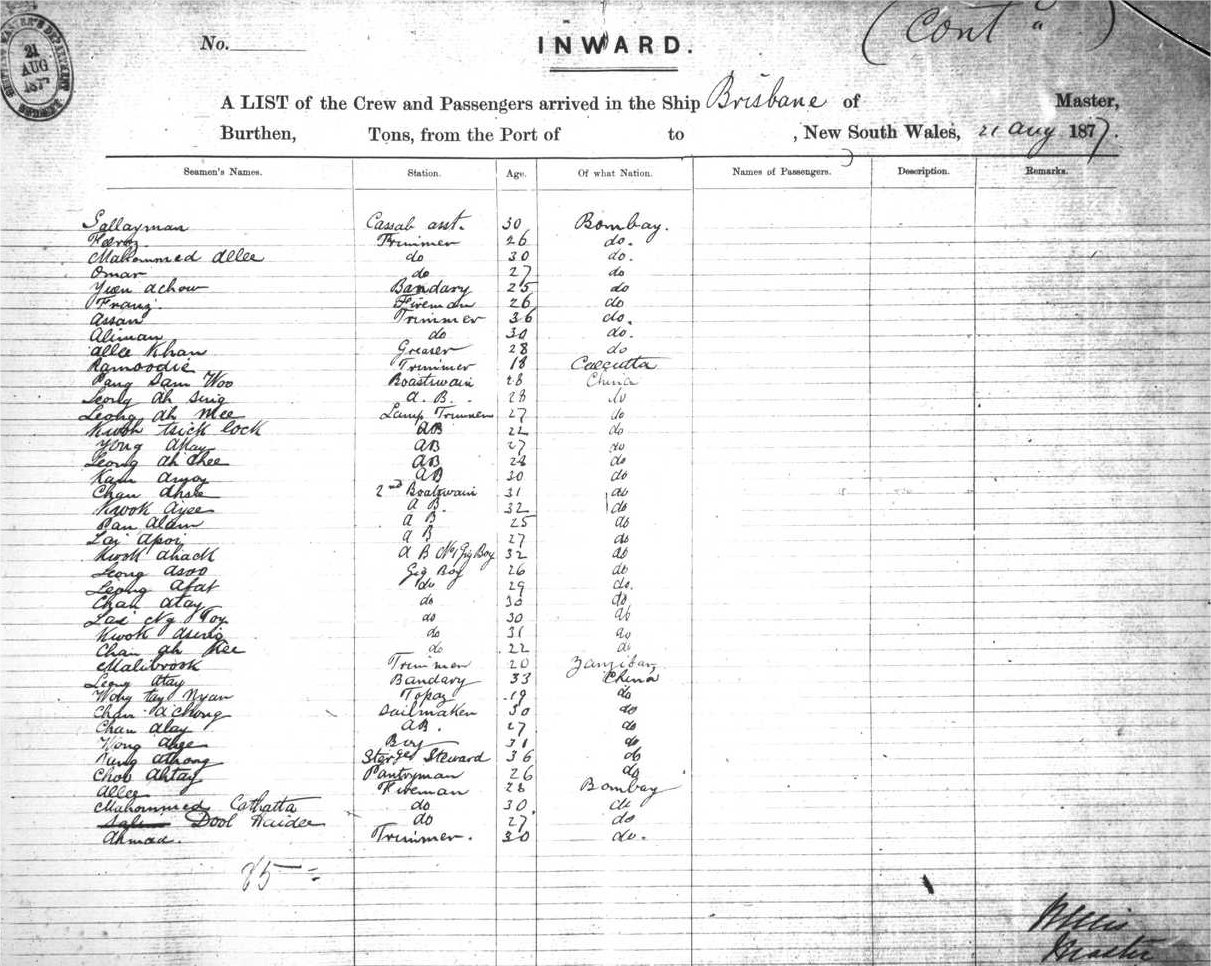 (Cont d)
21 AUG 187
No.
INWARD.
A LIST of the Crew and Passengers arrived in the Ship Brisbane of Master,
Burthen, Tons, from the Port of to , New South Wales, 21 Aug 1877.
Seamen's Names. Station. Age. Of what Nation. Names of Passengers. Description. Remarks.
Sallayman Cassab asst. 30 Bombay.
Trimmer 26 do.
Mahommed Allee do 30 do.
Omar do 27 do
Yuen Achow Bandary 25 do
Franz. Fireman 26 do
Assan Trimmer 36 do.
Aliman do 30 do.
Allee Khan Greaser 28 do
Ramoodie Trimmer 18 Calcutta
Pang Sam Woo Boastwain 28 China
Leong Ah Sing A. B. 28 do
Leong Ah Mee Lamp Trimmer 27 do
Kwok tsick lock AB 22 do
Yong Akay AB 27 do
Leong Ah Chee AB 28 do
Kam Amoy AB 30 do
Chan Ahsee 2nd Boatswain 31 do
Kwok Ayee A B. 32 do
Pan Alam A B 25 do
Lai Apoi A B 27 do
Kwok Ahack A B No 1 Gig Boy 32 do
Leong Asoo Gig Boy 26 do
Leong Afat do 29 do.
Chan Atay do 30 do
Lai Ng Toy do 30 do
Kwok Asing do 31 do
Chan Ah Kee do 22 do
Malibrook Trimmer 20 Zanzibar
Leong Atay Bandary 33 China
Wong tay Nyan Topaz 19 do
Chan A Chong Sailmaker 30 do
Chan Alay AB. 27 do
Wong Ahee Boy 31 do
Kung Athong Steward 36 do
Chob Ahtay Pantryman 26 do
Allee Fireman 28 Bombay
Mahommed Cathatta do 30 do
Dool Haidee do 27 do
Ahmad. Trimmer. 30 do.
85
Master